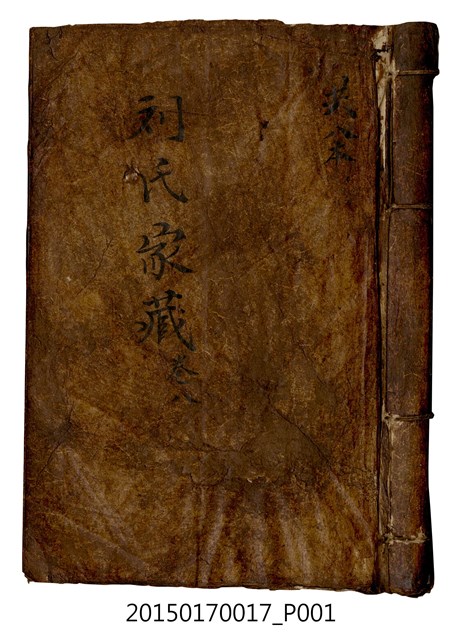 刘氏家藏
卷八
20150170017_P001